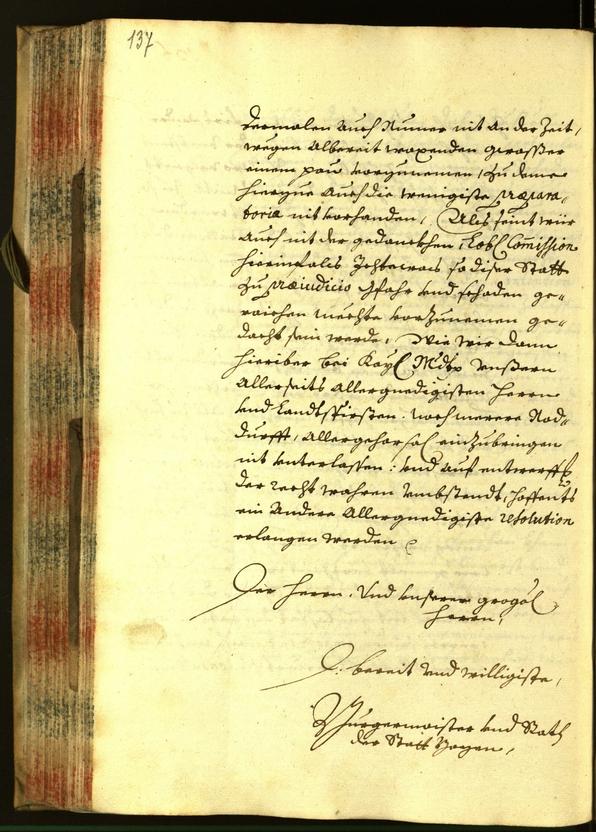 137
dermalen auch Numer nit an der Zeit,
wegen Albereit waxenden grosser
einem pau vorzunemen, Zu deme
hierzue auch die wenigiste præpara,
toria nit vorhanden, Als seint wür
auch nit der gedankhen, Lobl Comission
hierinfals Ichtwas so diser Statt
zu præiudicio gfahr und schaden ge„
raichen mechte vorzunemen ge„
dacht sein werde, Wie wir dann
hieriber bei Kayl Mdt unßern
Allerseits Allergnedigisten Herrn
und Landtsfürsten noch merere Nod„
durfft, Allergehorsa einzubringen
nit unterlassen: und auf entwerff
der recht wahren umbstendt, hoffents
ein Andere Allergnedigiste resolution
erlangen werden
Der Herrn, Und unserer
Herrn,
D: bereit und willigiste,
Burgermaister und Rath
der Statt Bozen,